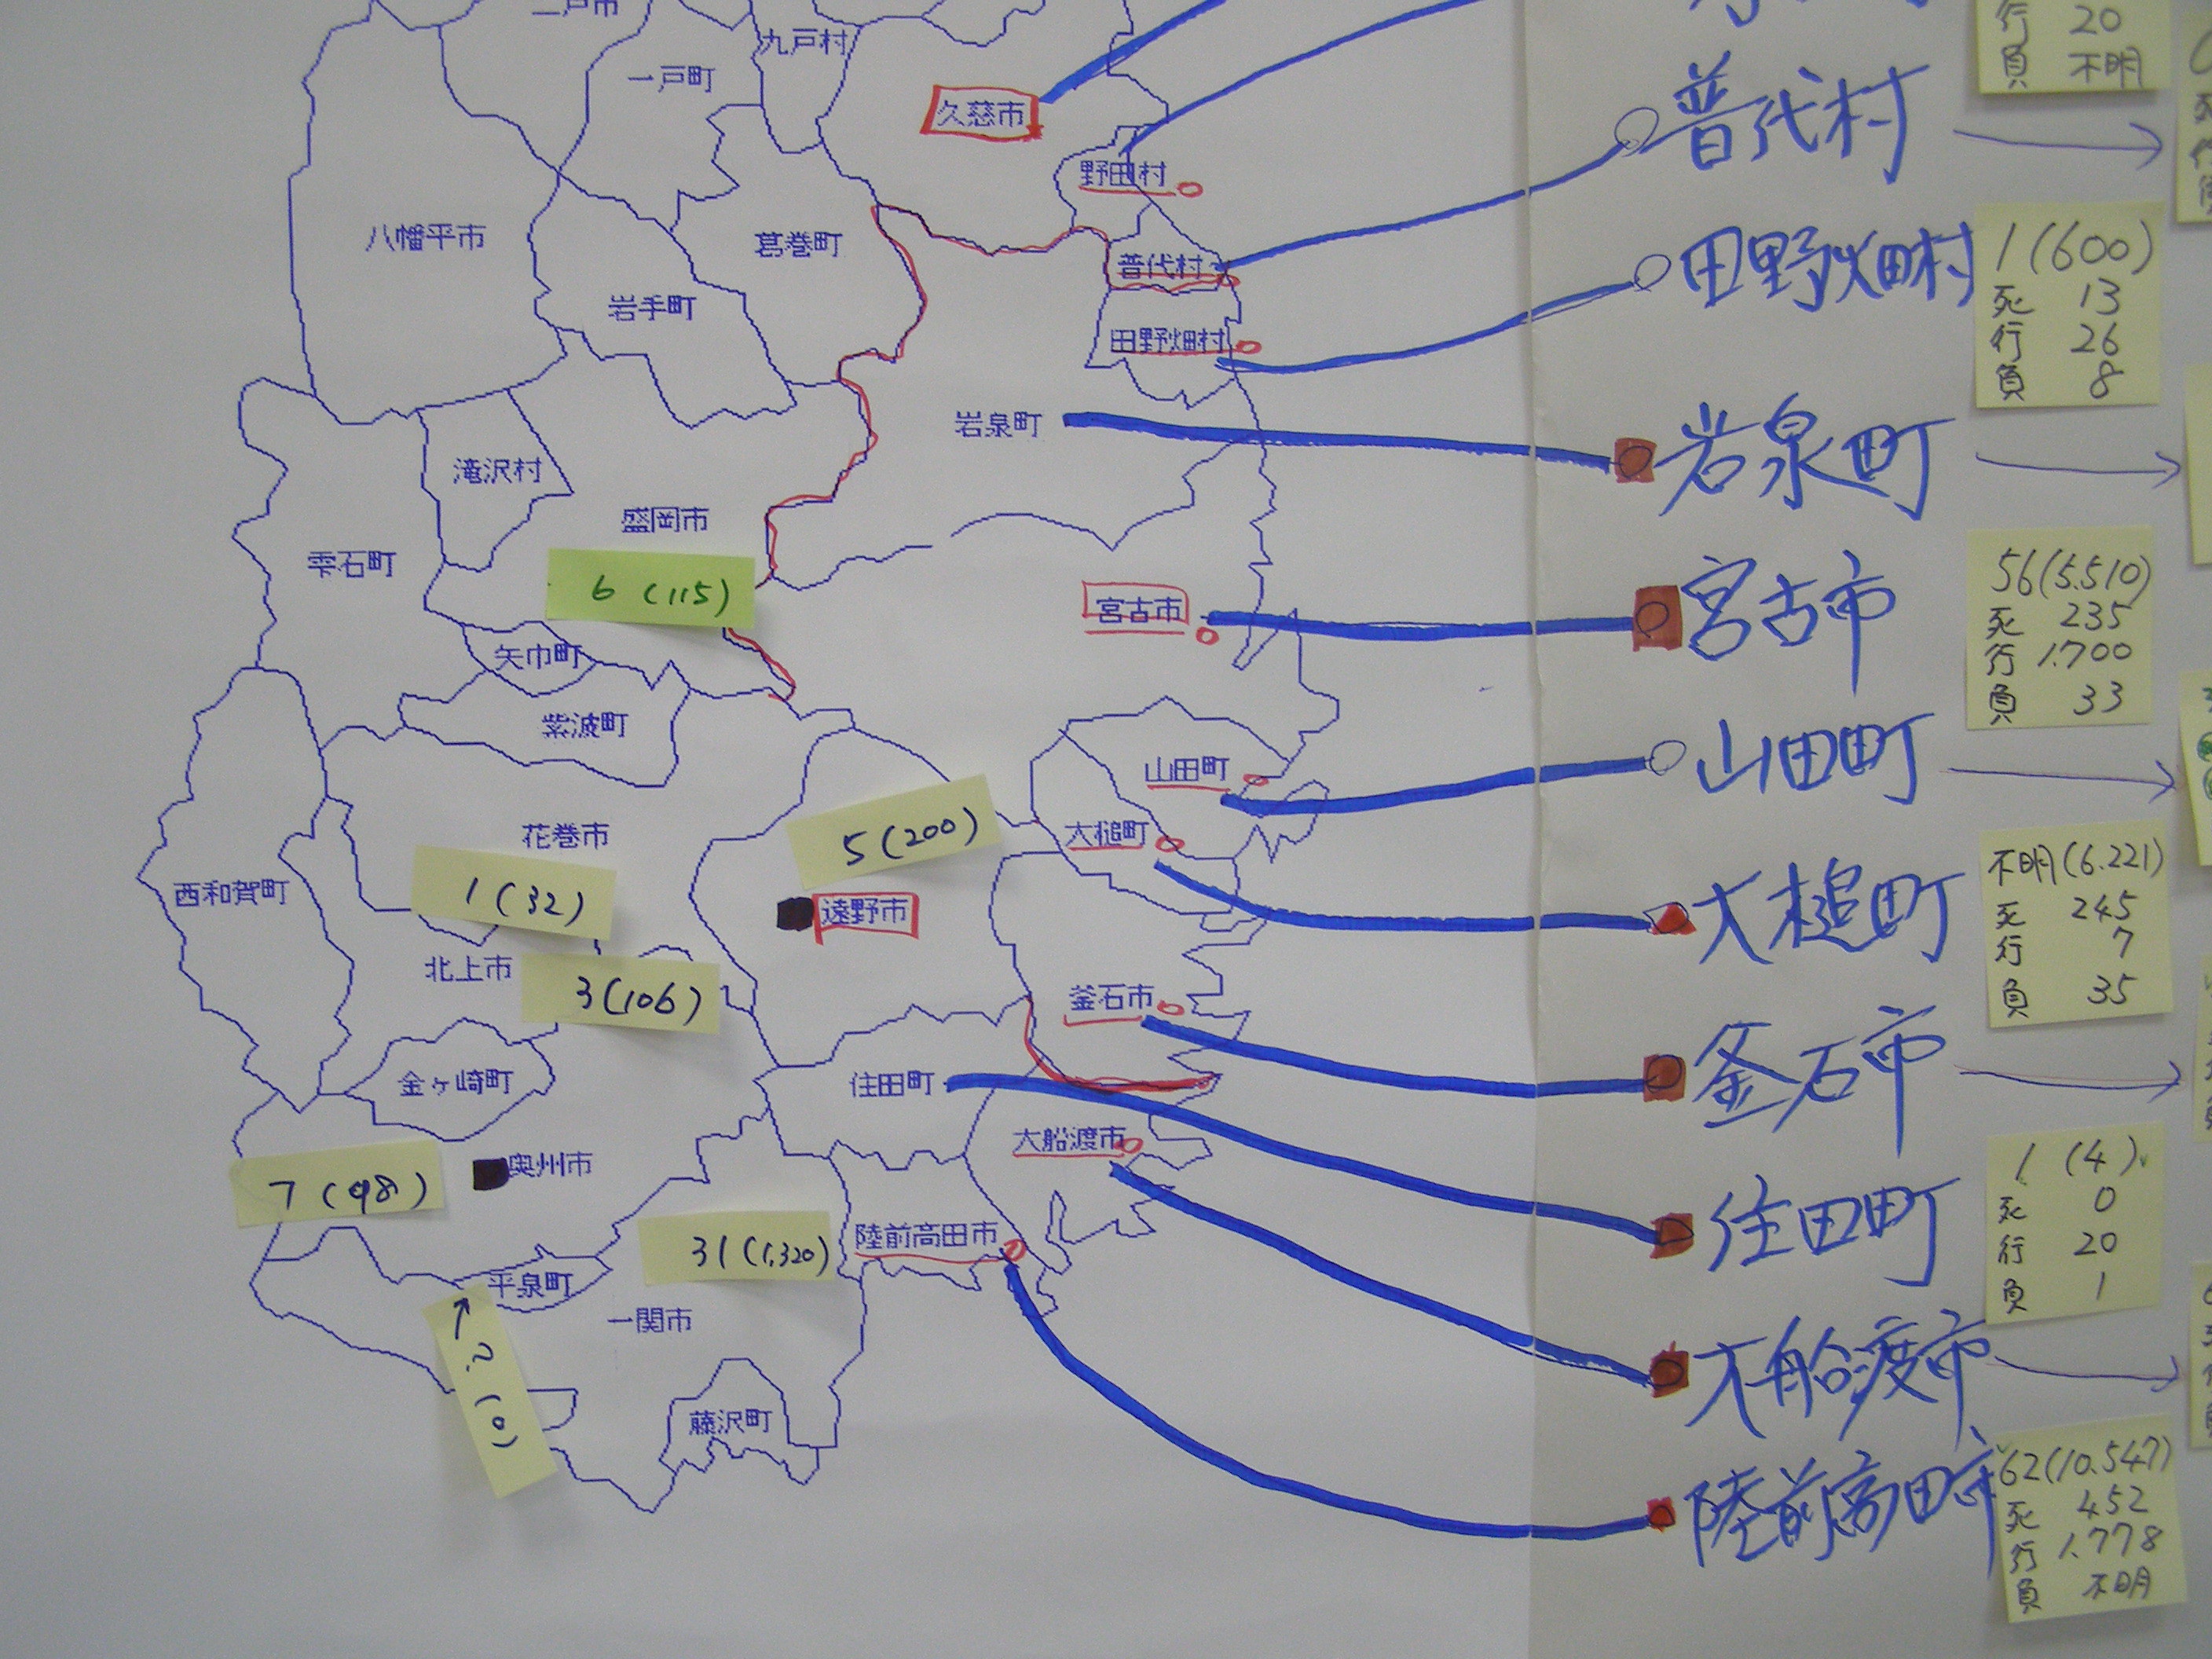 二戸市
九戸村
一戸町
久慈市
野田村
八幡平市
葛巻町
岩手町
普代村
田野畑村
岩泉町
滝沢村
盛岡市
雫石町
6 (115)
宮古市
矢巾町
紫波町
山田町
大槌町
花巻市
5 (200)
1 (32)
西和賀町
遠野市
北上市
3 (106)
釜石市
金ヶ崎町
住田町
大船渡市
奥州市
7 (98)
陸前高田市
31 (1,320)
平泉町
一関市
↑? (0)
藤沢町
行 20
負 不明
普代村 →
田野畑村
1 (600)
死 13
行 26
負 8
岩泉町 →
宮古市
56 (5.510)
死 235
行 1.700
負 33
山田町 →
大槌町
不明 (6.221)
死 245
行 7
負 35
釜石市 →
住田町
1 (4)
死 0
行 20
負 1
大船渡市 →
陸前高田市
62 (10.547)
死 452
行 1.778
負 不明